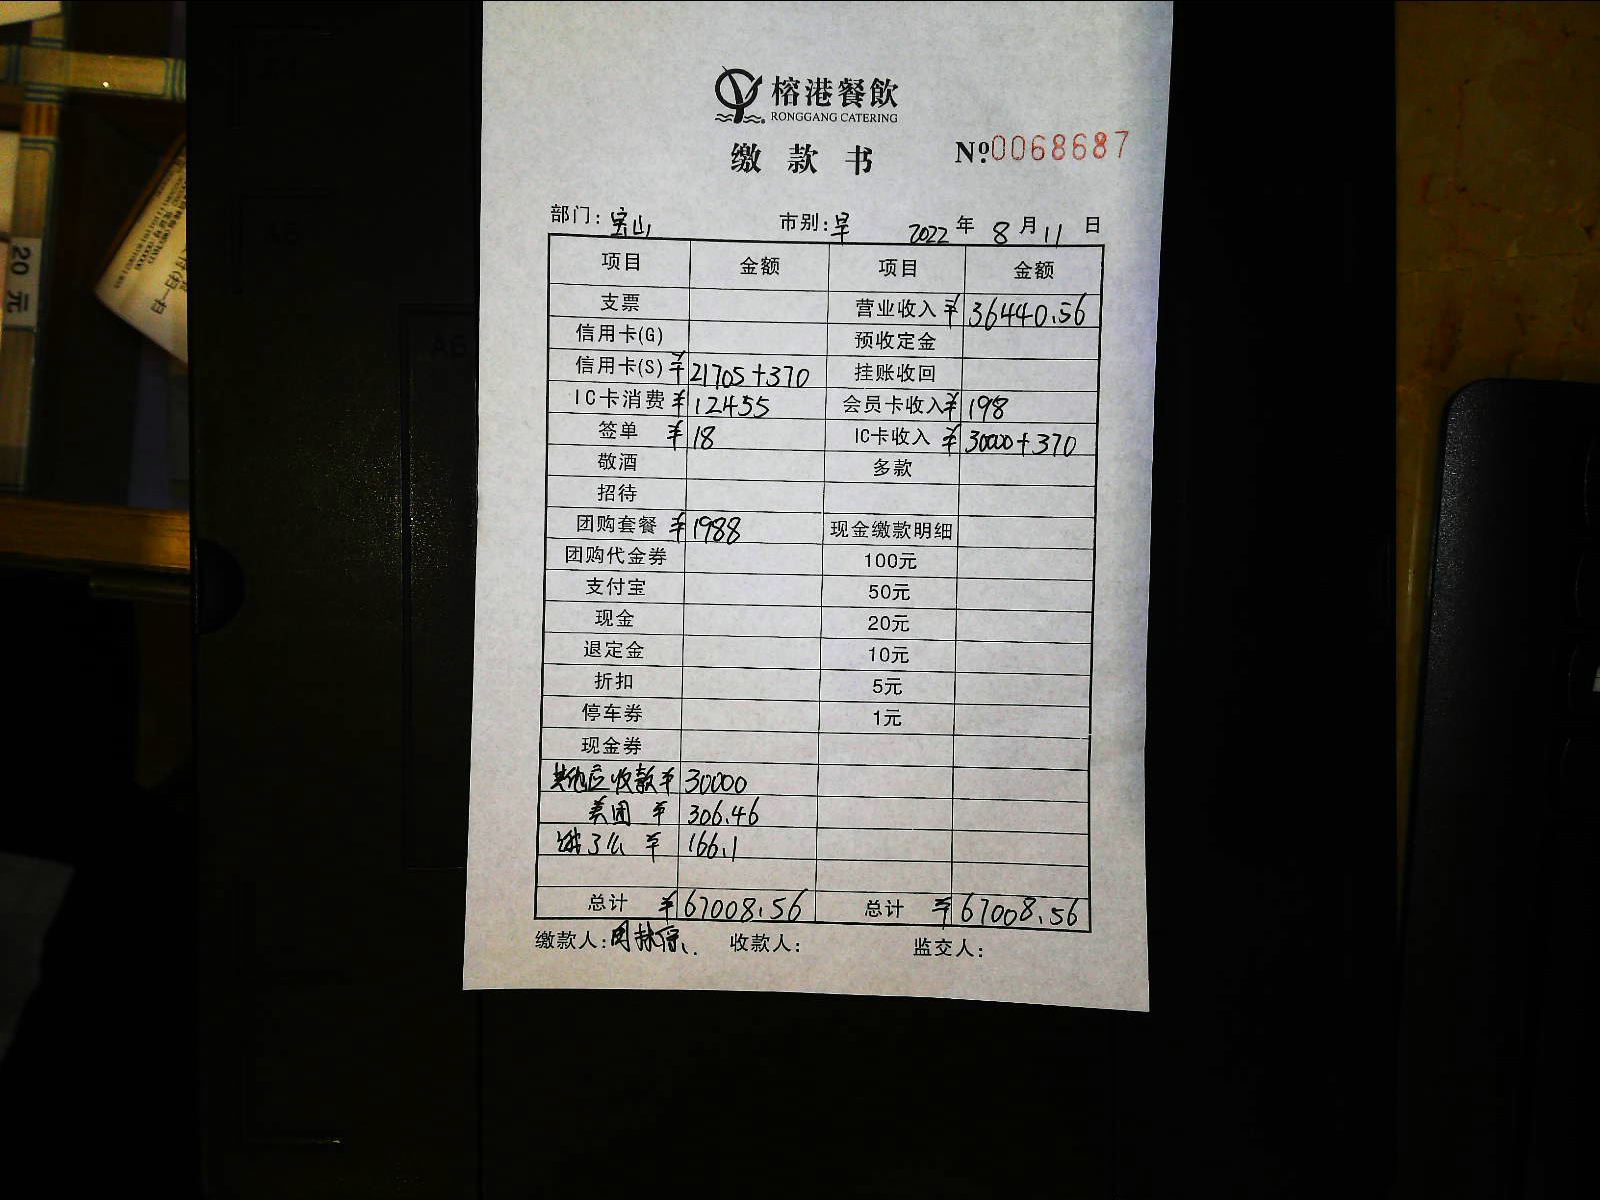 榕港餐飲
RONGGANG CATERING
缴款书 №0068687
部门：宝山 市别：早 2022年8月11日
项目 金额 项目 金额
支票 营业收入 ¥36440.56
信用卡(G) 预收定金
信用卡(S) ¥21705+370 挂账收回
IC卡消费 ¥12455 会员卡收入 ¥198
签单 ¥18 IC卡收入 ¥30000+370
敬酒 多款
招待
团购套餐 ¥1988 现金缴款明细
团购代金券 100元
支付宝 50元
现金 20元
退定金 10元
折扣 5元
停车券 1元
现金券
其他应收款 ¥30000
美团 ¥306.46
饿了么 ¥166.1
总计 ¥67008.56 总计 ¥67008.56
缴款人： 收款人： 监交人：
20元